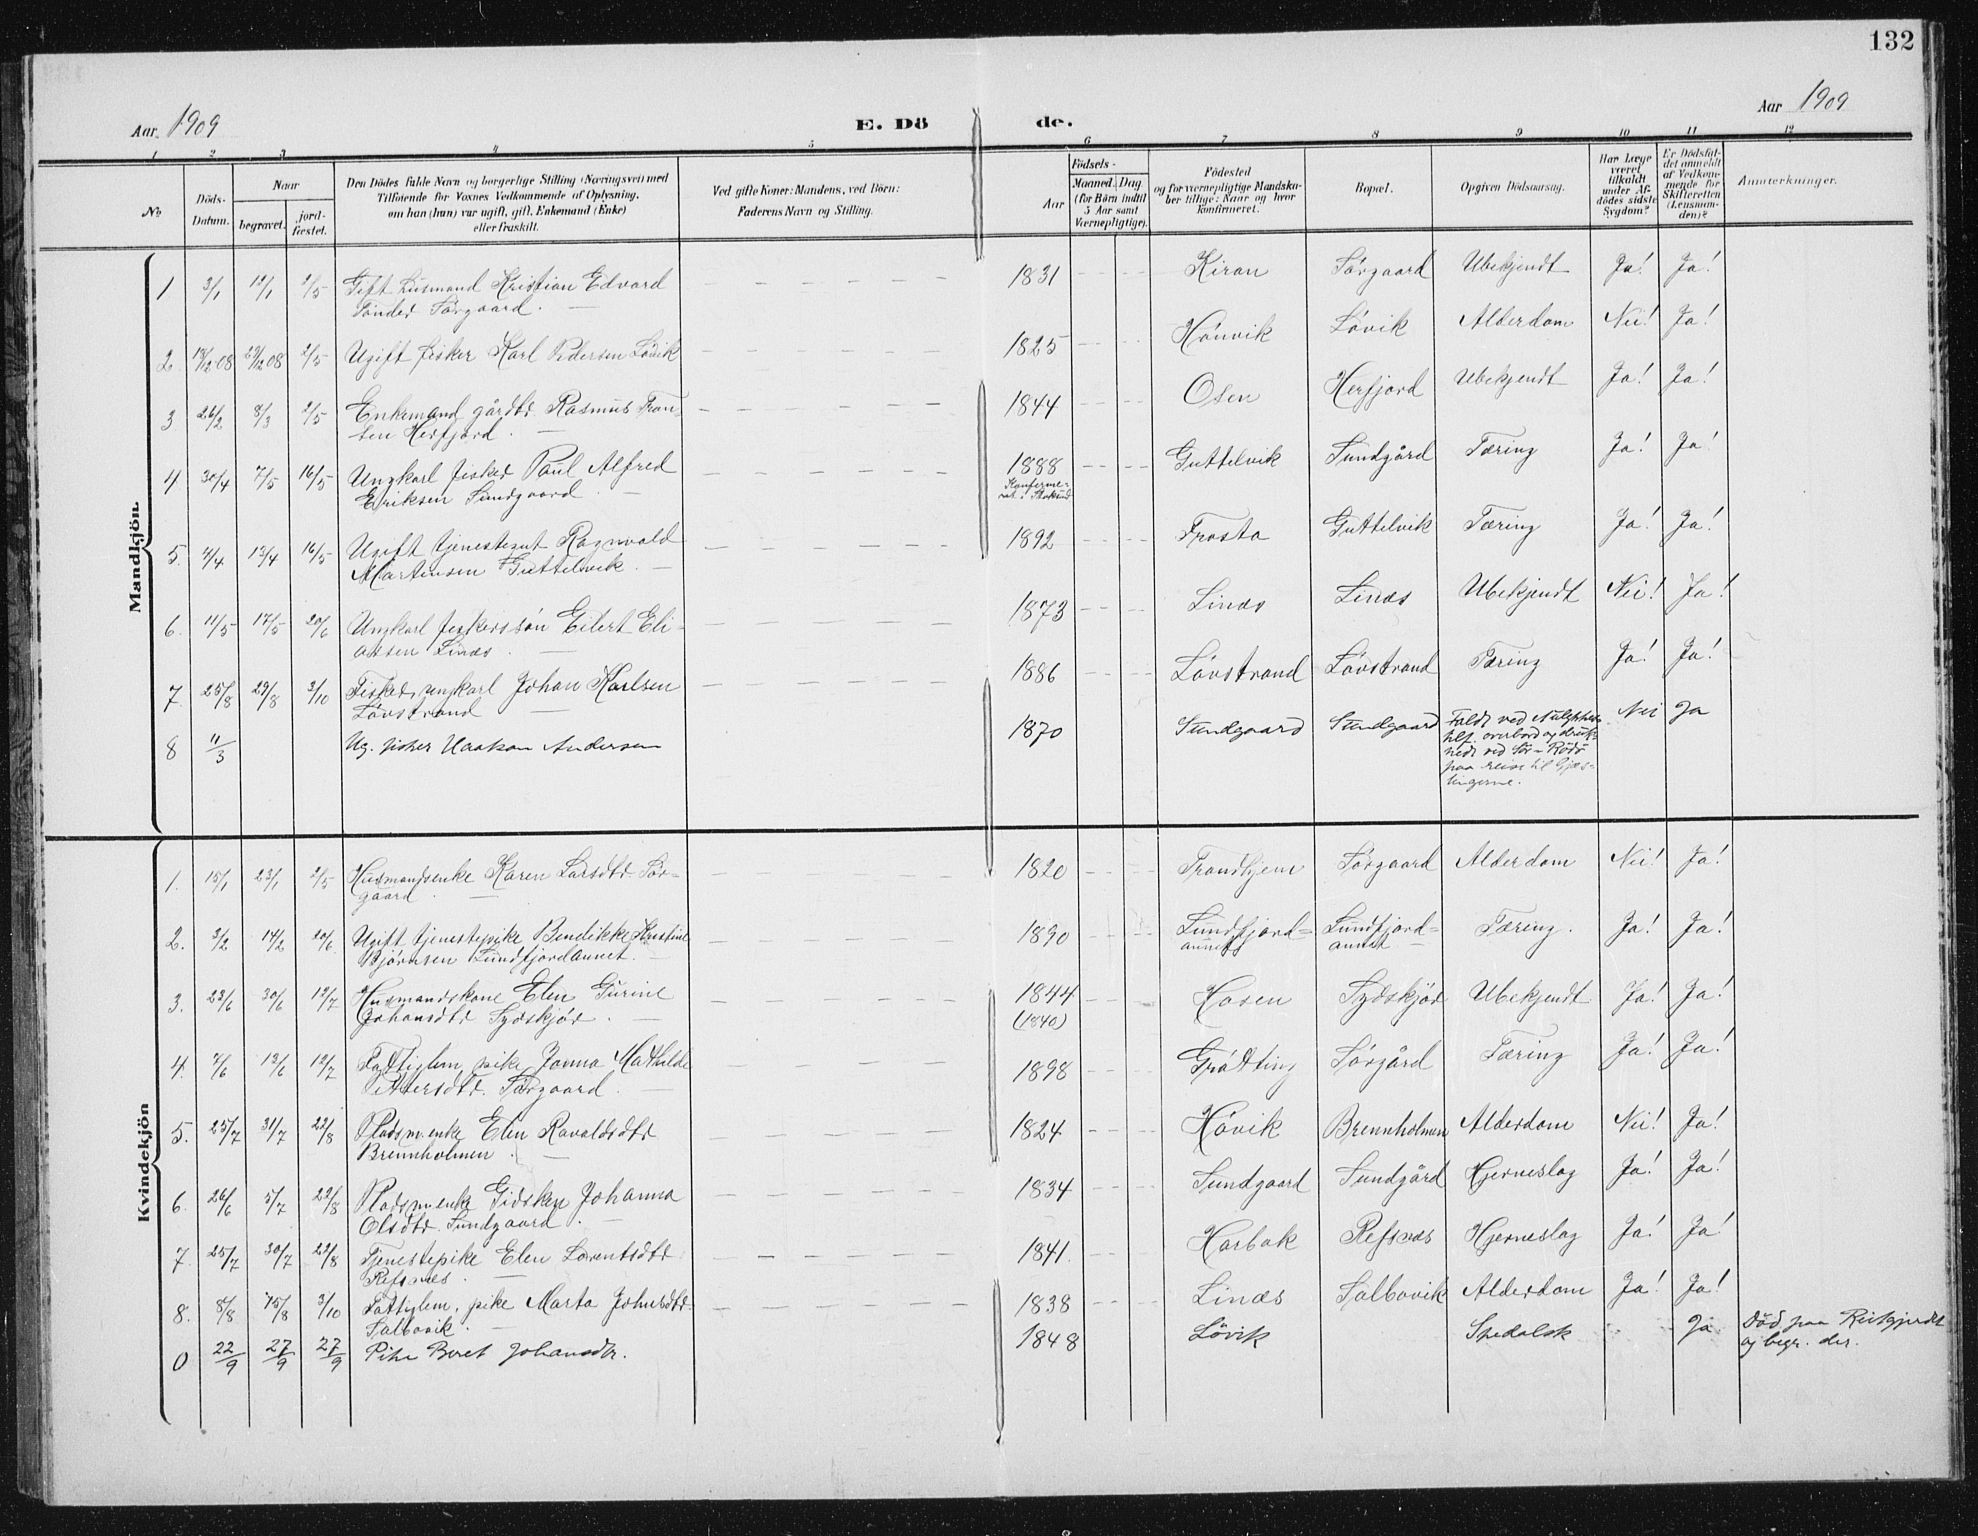 132
Aar 1909 E. Dö de. Aar 1909
1 2 3 4 5 6 7 8 9 10 11 12
No
Döds-
Datum.
Naar
begravet.
jord-
fæstet.
Den Dödes fulde Navn og borgerlige Stilling (Næringsvei) med
Tilföiende for Voxnes Vedkommende af Oplysning,
om han (hun) var ugift, gift, Enkemand (Enke)
eller fraskilt.
Ved gifte Koner: Mandens, ved Börn:
Faderens Navn og Stilling.
Födsels-
Aar
Maaned. Dag
(for Börn indtil
5 Aar samt
Værnepligtige).
Födested
og for værnepligtige Mandska-
ber tillige: Naar og hvor
konfirmeret.
Bopæl.
Opgiven Dödsaarsag.
Har Læge
været
tilkaldt
under Af-
dödes sidste
Sygdom?
Er Dödsfal-
det anmeldt
af Vedkom-
mende for
Skifteretten
(Lensman-
den)?
Anmærkninger.
Mandkjön.
1 3/1 12/1 2/5 Gift husmand Kristian Edvard
Tönder Sörgaard. 1831 Kiran Sörgaard Ubekjendt Ja! Ja!
2. 18/12 08 29/12 08 2/5 Ugift fisker Karl Pedersen Lövik 1825 Hönvik Lövik Alderdom Nei! Ja!
3 26/2 8/3 2/5 Enkemand gårdbr Rasmus Tron-
sen Herfjord. 1844 Osen Herfjord Ubekjendt Ja! Ja!
4 30/4 7/5 16/5 Ungkarl fisker Paul Alfred
Eriksen Sundgaard. 1888 Guttelvik Sundgård Tæring Ja! Ja!
Konfirme-
ret i Stoksund
5. 7/4 13/4 16/5 Ugift tjenestegut Ragnvald
Martinsen Guttelvik. 1892 Frosta Guttelvik Tæring Ja! Ja!
6. 11/5 17/5 20/6 Ungkarl fiskerssön Eilert Eli-
assen Linæs. 1873 Linæs Linæs Ubekjendt Nei! Ja!
7. 25/8 29/8 3/10 Fisker, ungkarl Johan Karlsen
Lövstrand 1886 Lövstrand Lövstrand Tæring Ja! Ja!
8 11/3 Ug. fisker Haakon Andersen 1870 Sundgaard Sundgaard Faldt ved
overbord og druk-
nede ved Sör-Rödö
paa reise til Gjæs-
lingerne. Nei Ja
Kvindekjön
1. 15/1 23/1 2/5 Husmandsenke Karen Larsdtr Sör-
gaard. 1820 Trondhjem Sörgaard Alderdom Nei! Ja!
2. 3/2 14/2 20/6 Ugift tjenestepike Bendikke Kristine
Björnsen Sundfjordaunet. 1890 Sundfjord-
aunet Sundfjord-
aunet Tæring. Ja! Ja!
3. 23/6 30/6 12/7 Husmandskone Elen Gurine
Johansdtr Sydskjör. 1844
(1840) Hosen Sydskjör Ubekjendt Ja! Ja!
4. 7/6 13/6 12/7 Fattiglem, pike Jonna Mathilde
Pettersdtr. Sörgaard. 1898 Gråtting Sörgård Tæring Ja! Ja!
5. 25/7 31/7 22/8 Pladsm.enke Elen Ravaldsdtr
Brennholmen. 1824 Hövik Brennholmen Alderdom Nei! Ja!
6. 26/6 5/7 22/8 Pladsm.enke Gidsken Johanna
Olsdtr. Sundgaard. 1834 Sundgaard Sundgård Hjerneslag Ja! Ja!
7. 25/7 30/7 22/8 Tjenestepike Elen Lorentsdtr
Refsnes. 1841. Harbak Refsnæs Hjerneslag Ja! Ja!
8. 8/8 15/8 3/10 Fattiglem, pike Marta Johnsdtr.
Salbovik. 1838 Linæs Salbovik Alderdom Ja! Ja!
0 22/9 27/9 27/9 Pike Beret Johansdtr. 1848 Lövik Spedalsk Ja Död paa Reitgjerdet
og begr. der.